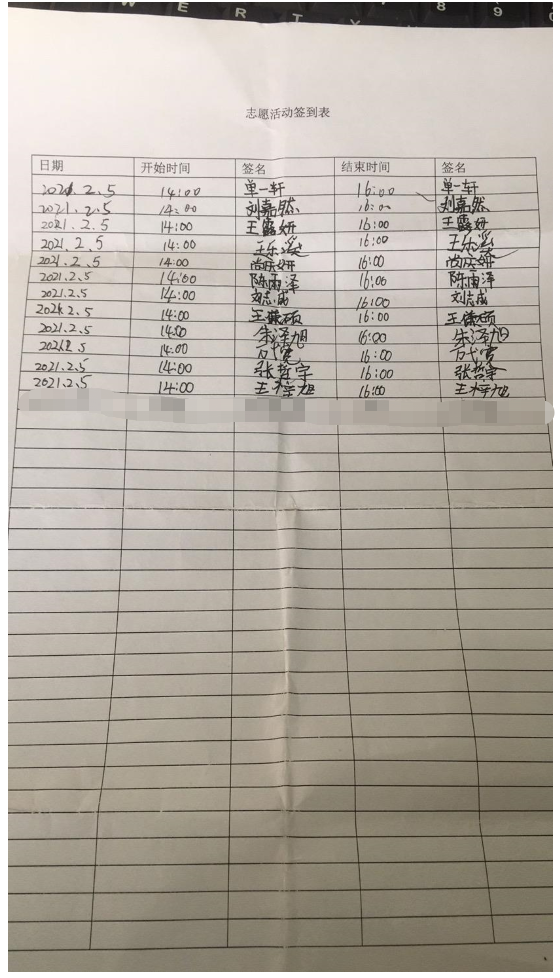 W E R T Y 8 9
志愿活动签到表
日期 开始时间 签名 结束时间 签名
2021.2.5 14:00 单一轩 16:00 单一轩
2021.2.5 14:00 刘嘉然 16:00 刘嘉然
2021.2.5 14:00 王露妍 16:00 王露妍
2021.2.5 14:00 王乐溪 16:00 王乐溪
2021.2.5 14:00 尚庆妍 16:00 尚庆妍
2021.2.5 14:00 陈雨泽 16:00 陈雨泽
2021.2.5 14:00 刘志成 16:00 刘志成
2021.2.5 14:00 王 硕 16:00 王 硕
2021.2.5 14:00 朱泽旭 16:00 朱泽旭
2021.2.5 14:00 16:00
2021.2.5 14:00 张哲宇 16:00 张哲宇
2021.2.5 14:00 王梓旭 16:00 王梓旭